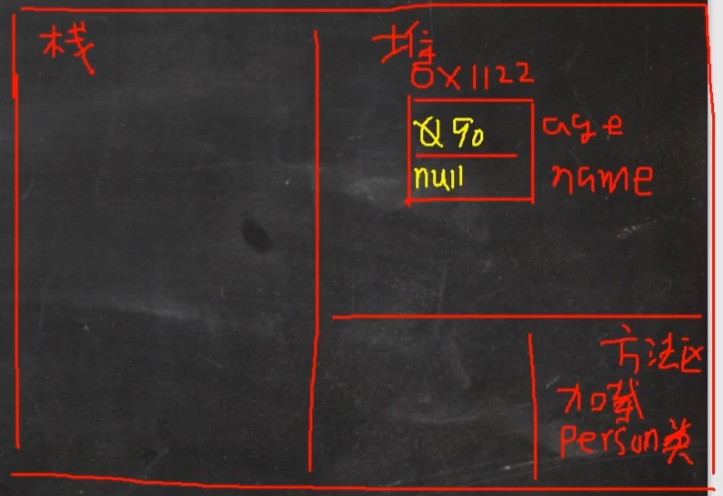 栈
堆
0x1122
0 90 age
null name
方法区
加载
Person类